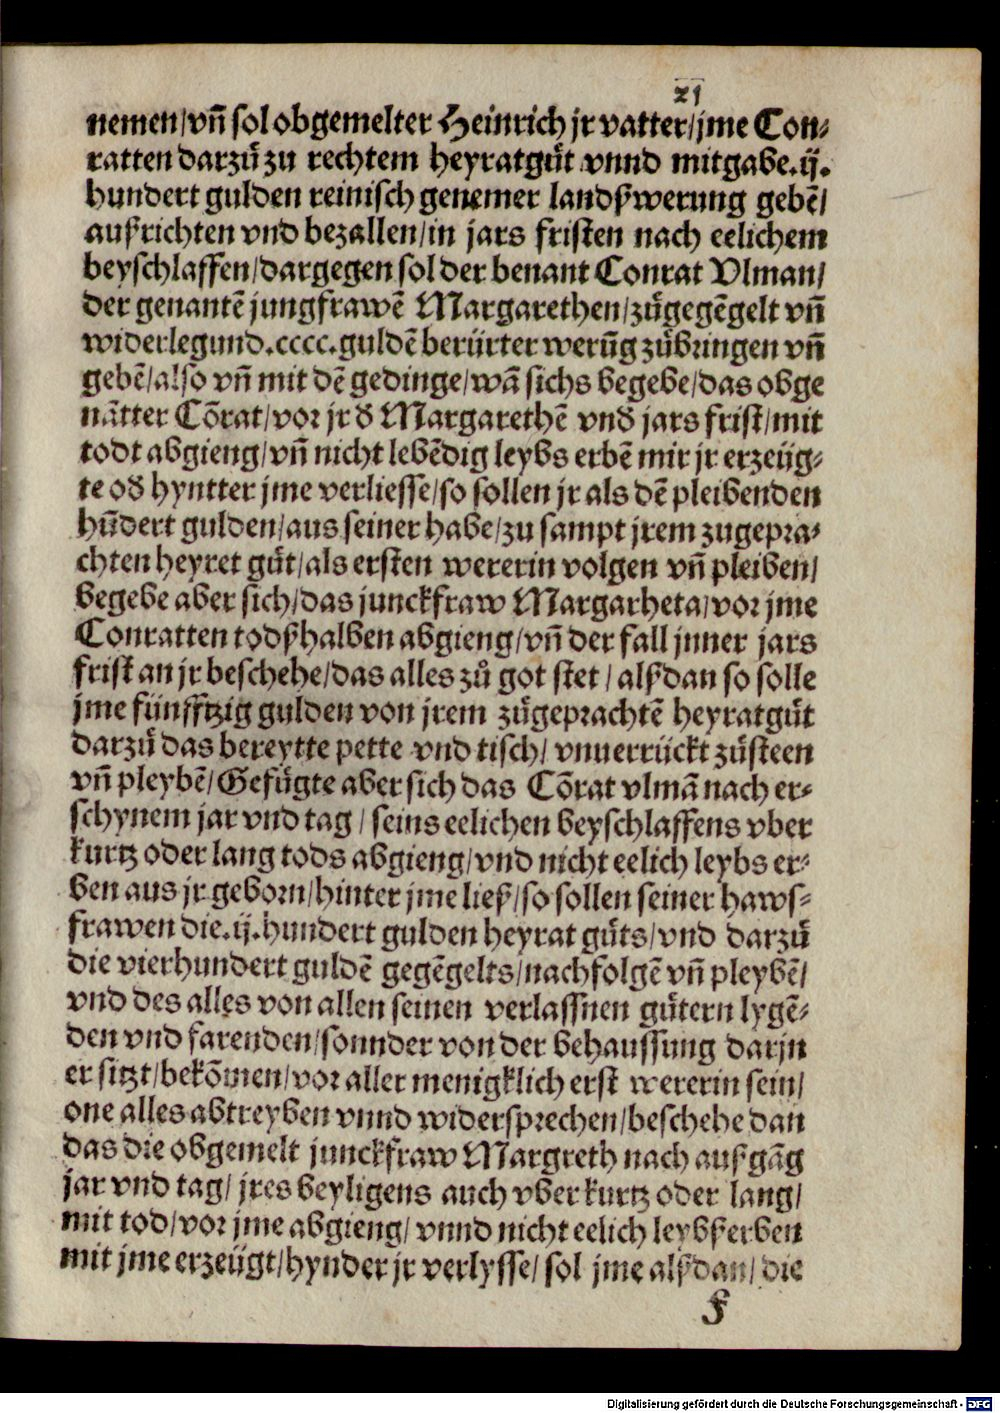 21
nemen/vn̄ sol obgemelter Heinrich jr vatter/jme Con⸗
ratten darzů zu rechtem heyratgůt vnnd mitgabe.ij.
hundert gulden reinisch genemer landßwerung gebē/
außrichten vnd bezallen/in jars fristen nach eelichem
beyschlaffen/dargegen sol der benant Conrat Vlman/
der genantē jungfrawē Margarethen/zůgegēgelt vn̄
widerlegund.cccc.guldē berürter werūg zůbringen vn̄
gebē/also vn̄ mit dē gedinge/wā sichs begebe/das obge
nātter Cōrat/vor jr d̄ Margarethē vnd̄ jars frist/mit
todt abgieng/vn̄ nicht lebēdig leybs erbē mir jr erzeüg⸗
te od̄ hyntter jme verliesse/so sollen jr als dē pleibenden
hūdert gulden/aus seiner habe/zu sampt jrem zugepra⸗
chten heyret gůt/als ersten wererin volgen vn̄ pleiben/
begebe aber sich/das junckfraw Margarheta/vor jme
Conratten todßhalben abgieng/vn̄ der fall jnner jars
frist an jr beschehe/das alles zů got stet/alßdan so solle
jme fünfftzig gulden von jrem zůgeprachtē heyratgůt
darzů das bereytte pette vnd tisch/vnuerrückt zůsteen
vn̄ pleybē/Gefůgte aber sich das Cōrat vlmā nach er⸗
schynem jar vnd tag/seins eelichen beyschlaffens vber
kurtz oder lang tods abgieng/vnd nicht eelich leybs er⸗
ben aus jr geborn/hinter jme ließ/so sollen seiner haws⸗
frawen die.ij.hundert gulden heyrat gůts/vnd darzů
die vierhundert guldē gegēgelts/nachfolgē vn̄ pleybē/
vnd des alles von allen seinen verlassnen gůtern lygē⸗
den vnd farenden/sonnder von der behaussung darjn
er sitzt/bekōmen/vor aller menigklich erst wererin sein/
one alles abtreyben vnnd widersprechen/beschehe dan
das die obgemelt junckfraw Margreth nach außgāg
jar vnd tag/jres beyligens auch vber kurtz oder lang/
mit tod/vor jme abgieng/vnnd nicht eelich leybßerben
mit jme erzeügt/hynder jr verlysse/sol jme alßdan/die
F
Digitalisierung gefördert durch die Deutsche Forschungsgemeinschaft - DFG